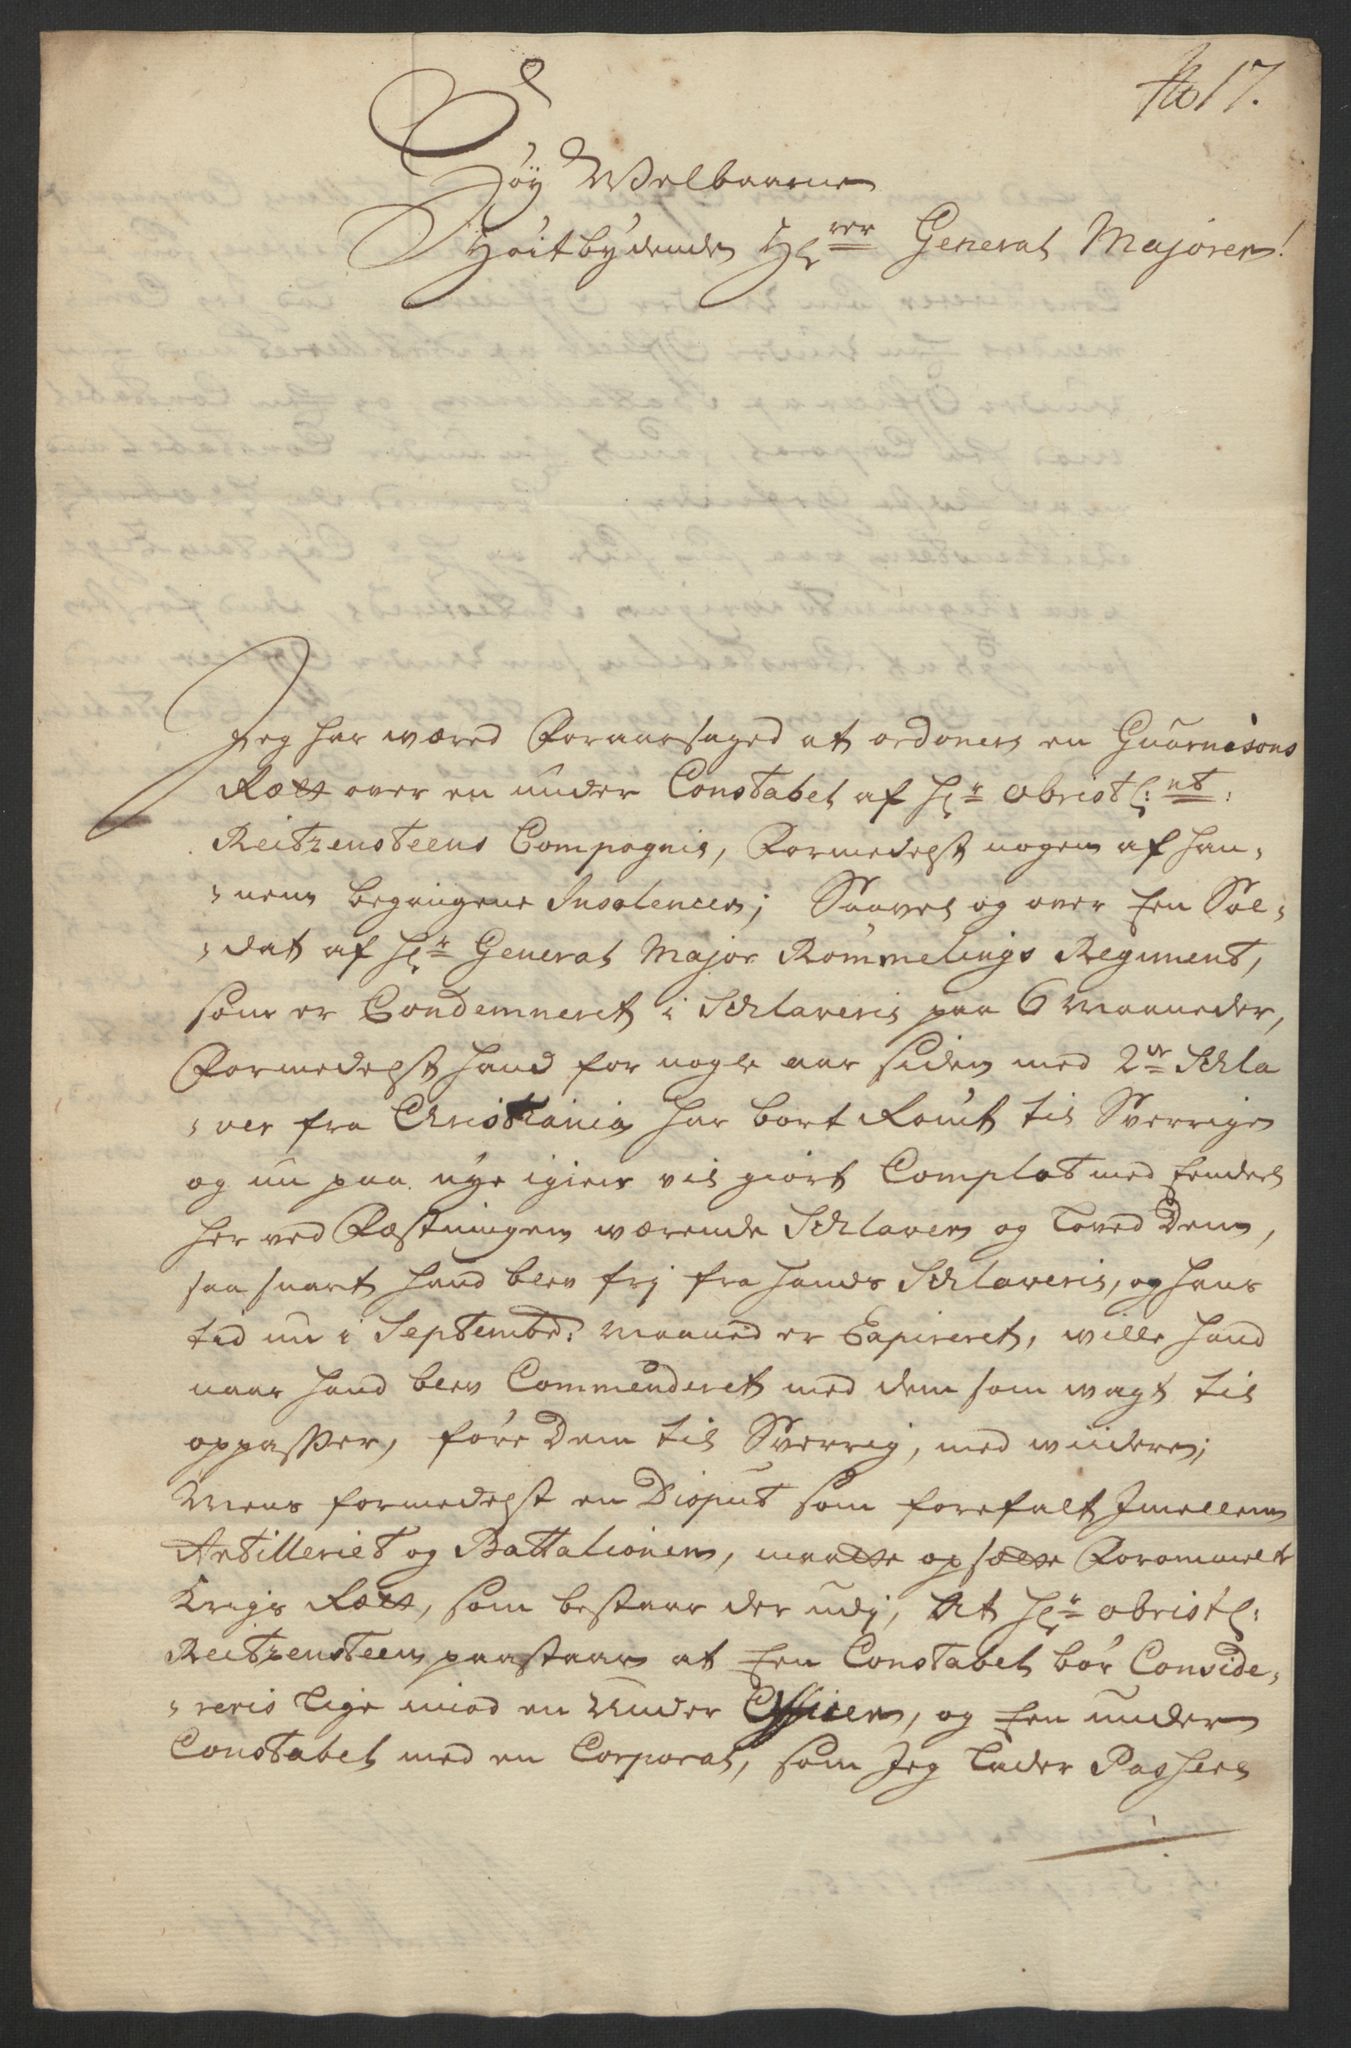 No 17.
Høy Welbaarne
Høitbydende Hrer General Majoren!
Jeg har været Foraarsaged at ordonere en Guarnisons
Rætt over en under Constabel af Hr Obristl:nt:
Reitzensteens Compagnie, Formedelst nogen af han-
-nem begangene Insolencer; Saavel og over Een Sol-
-dat af Hr General Major Rømmelings Regiment,
som er Condemneret i Schlaverie paa 6 maaneder,
Formedelst hand for nogle aar siden med 2de Schla
-ver fra Christiania har bort Rømt til Sverrige
og nu paa nye igien vil giørt Complot med Eendeel
her ved Fæstningen wærende Schlaver og Loved Dem,
saa snart hand blev frj fra hands Schlaverie, og hans
tid nu i Septembr: maaned er Expireret, wille hand
naar hand blev Commenderet med dem som wagt til
oppasser, føre Dem til Sverrig, med wiidere;
Mens formedelst en Disput som forefalt Jmellem
Artilleriet og Battalionen, maatte opsætte Forommelte
Krigs Rætt, som bestaar der udj, At Hr Obristl:
Reitzensteen paastaar at Een Constabel bør Conside-
-reris lige mod en Under Officer, og Een under
Constabel med en Corporal, som Jeg Lader Pashere